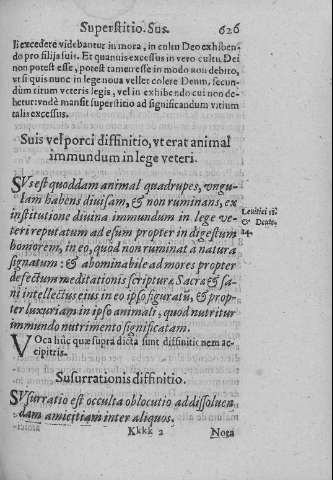 Superstitio. Sus. 626
li excedere videbantur in mora, in cultu Deo exhiben-
do pro filijs suis. Et quamuis excessus in vero cultu Dei
non potest esse, potest tamen esse in modo non debito,
vt si quis nunc in lege noua vellet colere Deum, secun-
dùm titum veteris legis, vel in exhibendo cui non de-
betur: vndè mansit superstitio ad significandum vitium
talis excessus.
Suis vel porci diffinitio, vt erat animal
immundum in lege veteri.
SVs est quoddam animal quadrupes, vngu-
lam habens diuisam, & non ruminans, ex
institutione diuina immundum in lege ve-
teri reputatum ad esum propter indigestum
homorem, in eo, quod non ruminat a natura
signatum: & abominabile ad mores propter
defectum meditationis scripturæ Sacræ & sa-
ni intellectus eius in eo ipso figuratũ, & prop-
ter luxuriam in ipso animali, quod nutritur
immundo nutrimento significatam.
Leuitici 11.
& Deute.
14.
VOca hũc quæ supra dicta sunt diffinitionem ac-
cipitris.
Susurrationis diffinitio.
SVsurratio est occulta oblocutio ad dissoluen
dam amicitiam inter aliquos.
Kkkk 2 Nota